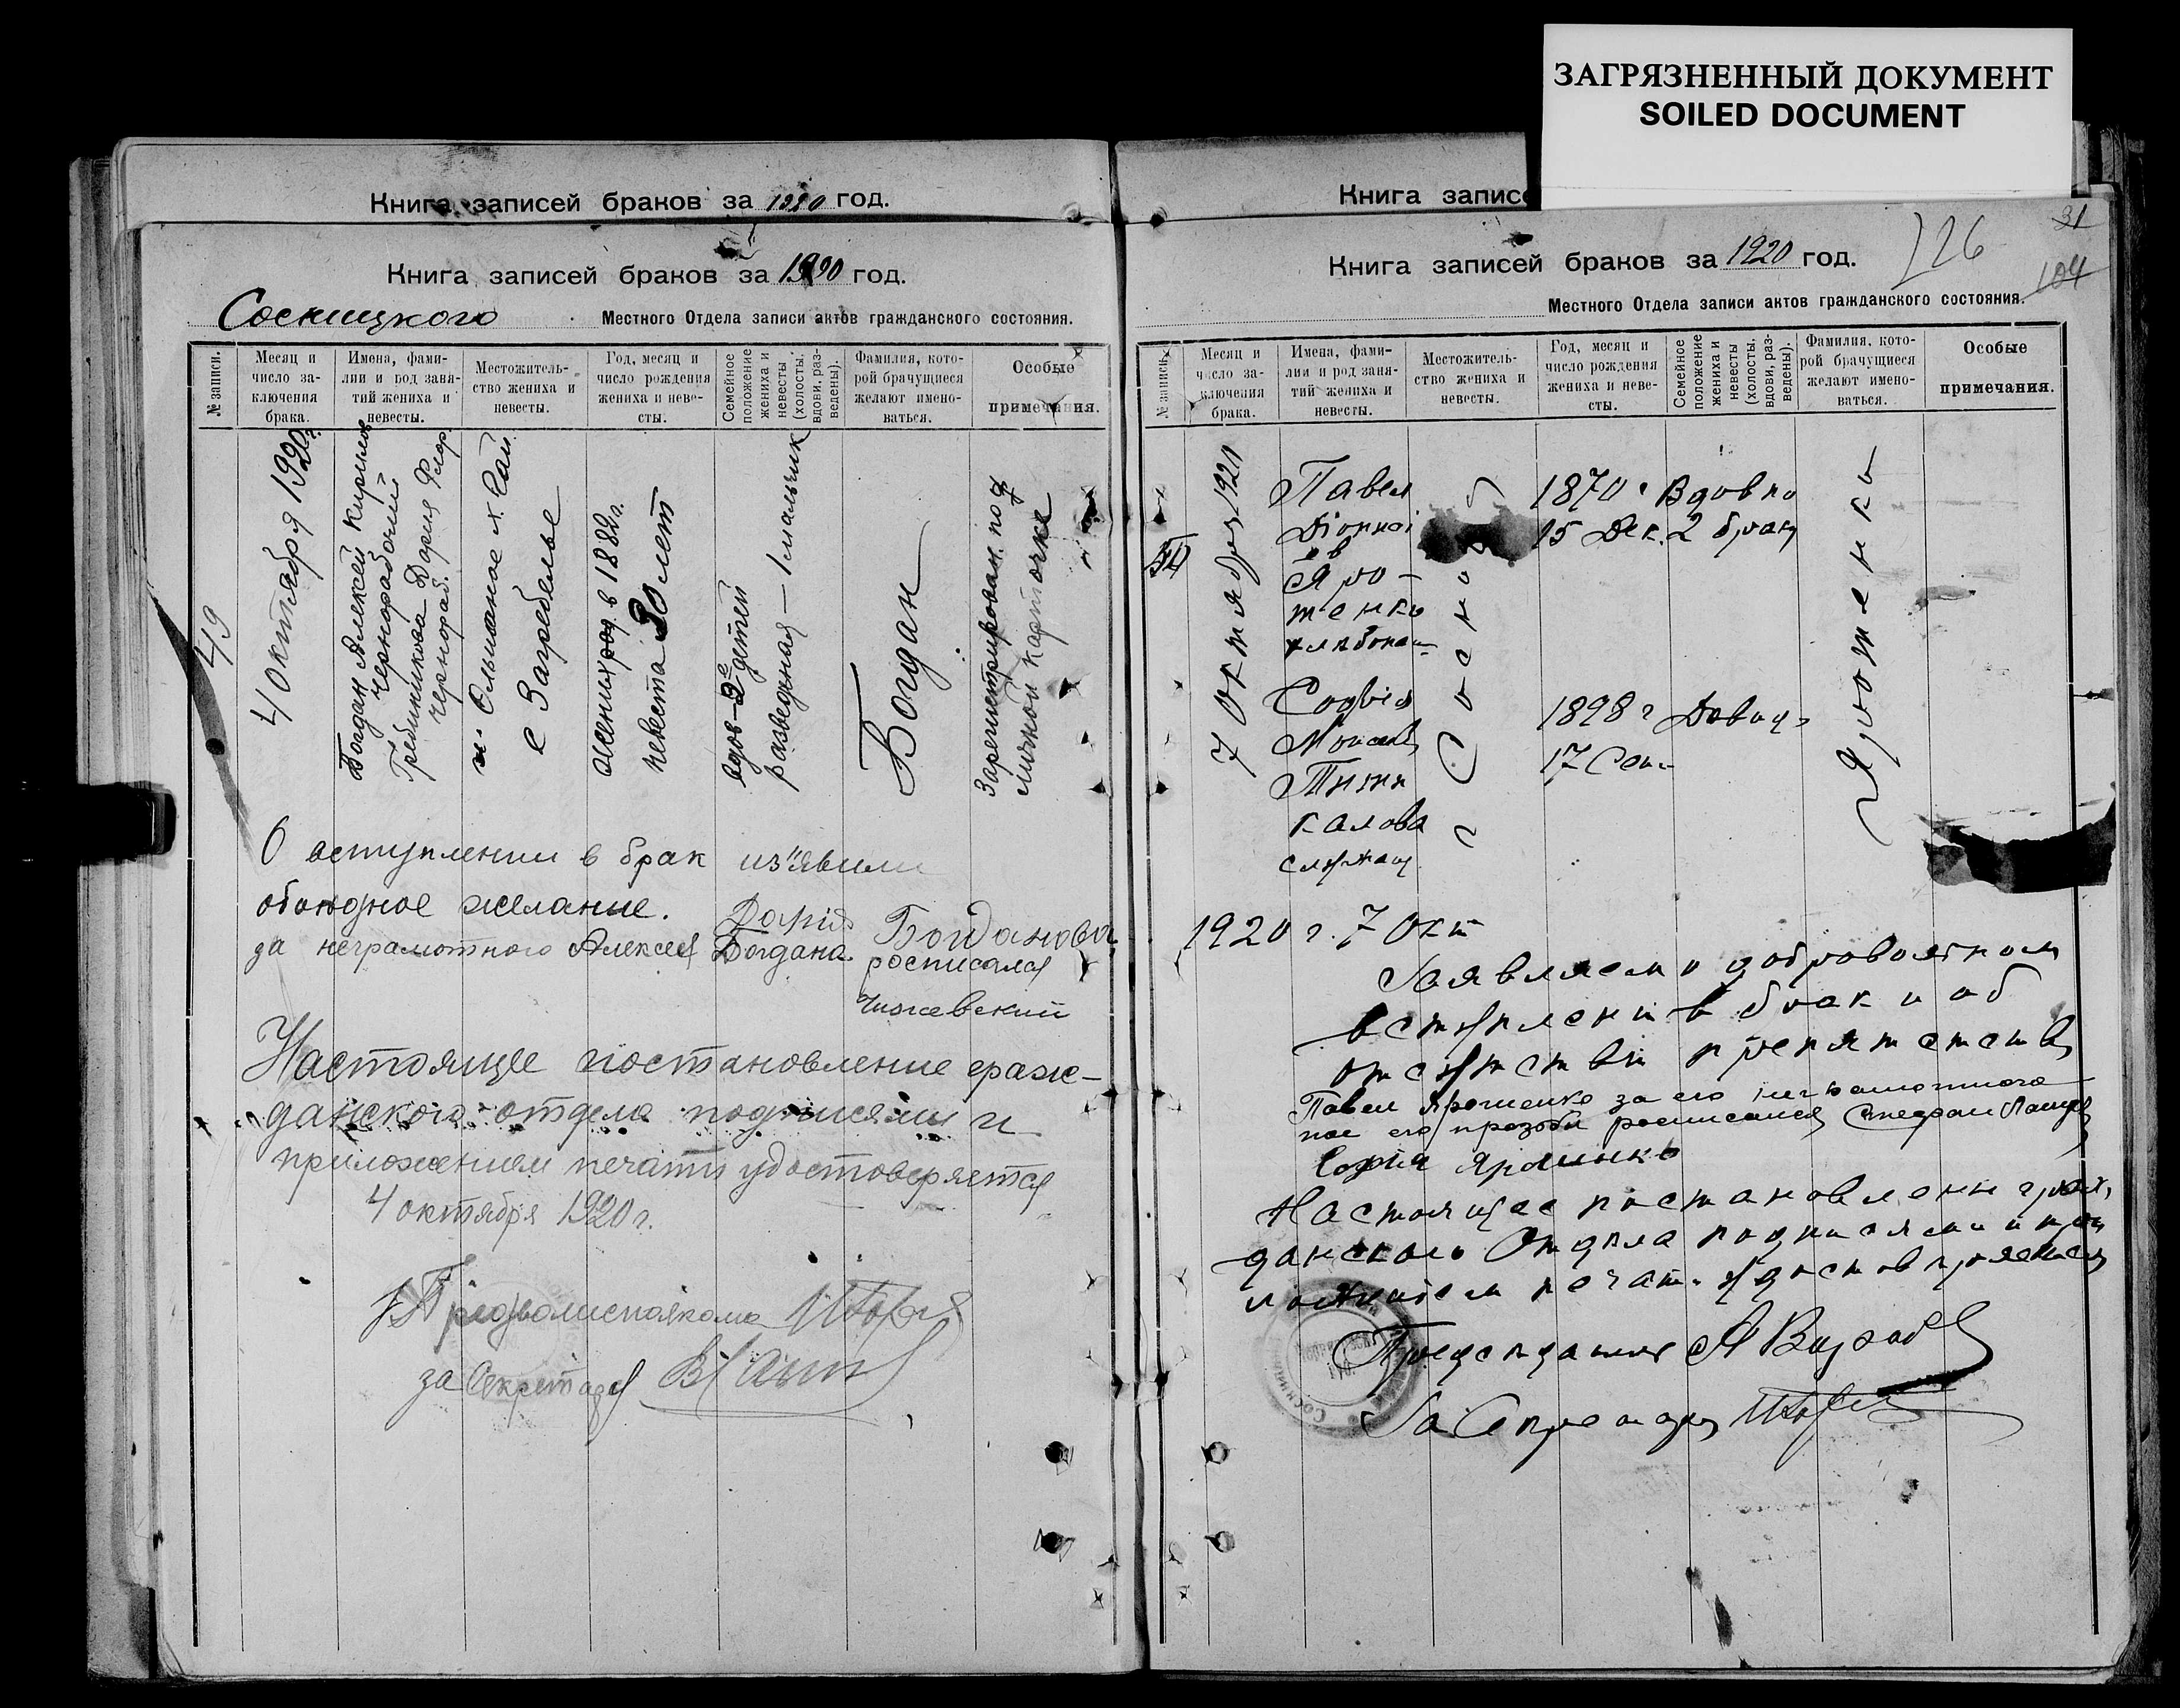 ЗАГРЯЗНЕННЫЙ ДОКУМЕНТ
SOILED DOCUMENT
Книга записей браков за 1920 год.
Книга записей браков за 1920 год.
Сосницкого Местного Отдела записи актов гражданского состояния.
№ записи.
Месяц и число заключения брака.
Имена, фамилии и род занятий жениха и невесты.
Местожительство жениха и невесты.
Год, месяц и число рождения жениха и невесты.
Семейное положение жениха и невесты (холосты, вдовы, разведены).
Фамилия, которой брачущиеся желают именоваться.
Особые примечания.
49
4 октября 1920 г.
Богдан Алексей Кирилов
чернорабочий
Гребенникова Дария Фдор.
чернораб.
с Загребелье
жених род. в 1882 г.
невеста 30 лет
вдов - 2е детей
разведеная - 1 мальчик
Богдан
Зарегистрирован под
личной карточке
О вступлении в брак из"явили
обоюдное желание.
Дарія Богданова
за неграмотного Алексея Богдана росписался
Чижевский
Настоящее постановление граж-
данского отдела подписями и
приложением печати удостоверяется
4 октября 1920 г.
Предволисполкома
за Секретаря
Книга записе
126
31
104
Книга записей браков за 1920 год.
Местного Отдела записи актов гражданского состояния.
№ записи.
Месяц и число заключения брака.
Имена, фамилии и род занятий жениха и невесты.
Местожительство жениха и невесты.
Год, месяц и число рождения жениха и невесты.
Семейное положение жениха и невесты (холосты, вдовы, разведены).
Фамилия, которой брачущиеся желают именоваться.
Особые примечания.
7 октября 1920
Павел
Яро-
шенко
Софія
Моисеев
калова
служащ.
г Сосн
1870 г
15 Дек.
1898 г
17 Сен.
Вдове
2 брак
Девиц.
Ярошенко
1920 г. 7 Окт
Заявляем о добровольном
вступлени в брак и об
отсутстви препятств
Павел Ярошенко за его неграмотного
по его прозьби росписался Стефан
Софія Ярошенко
Настоящее постановлени граж
данского Отдела подписями и при
ложением печат. удостоверяется
Председатель
За Секретаря